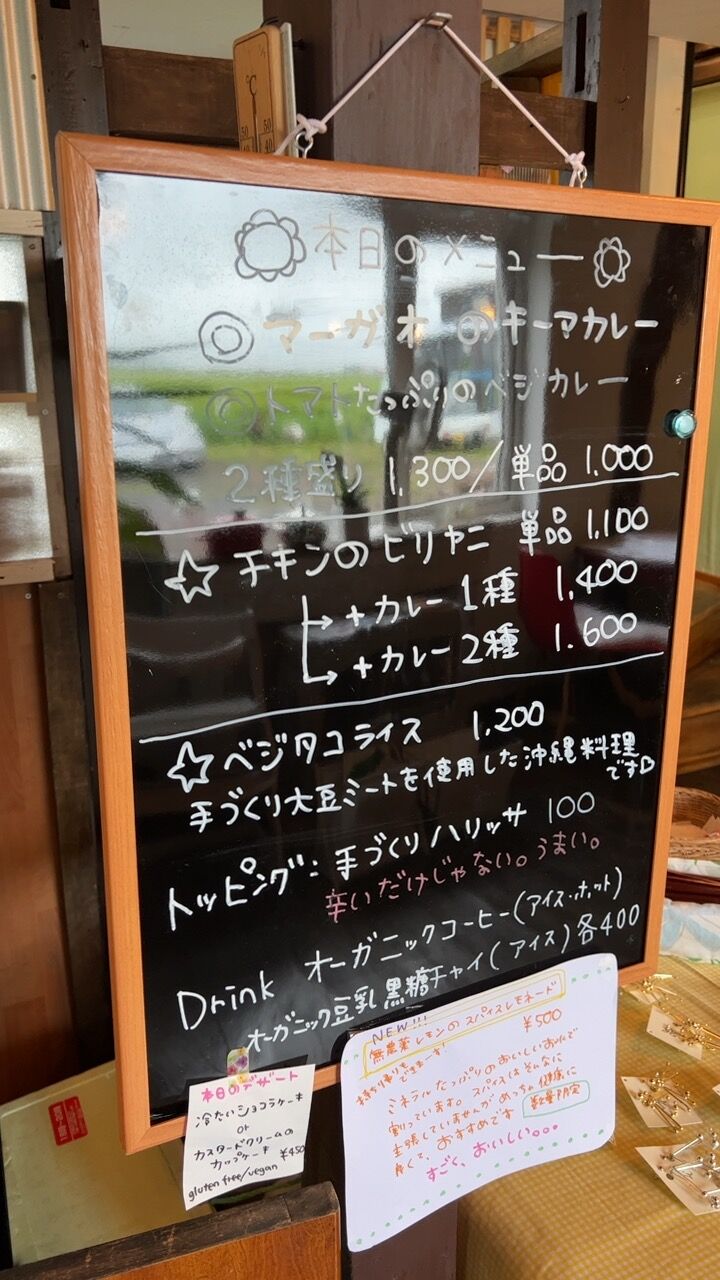 本日のメニュー
◎マーガオのキーマカレー
◎トマトたっぷりのベジカレー
2種盛り 1,300/単品 1,000
☆チキンのビリヤニ 単品 1,100
→+カレー1種 1,400
→+カレー2種 1.600
☆ベジタコライス 1,200
手づくり大豆ミートを使用した沖縄料理
です♡
トッピング:手づくりハリッサ 100
辛いだけじゃない。うまい。
Drink オーガニックコーヒー(アイス・ホット)
オーガニック豆乳黒糖チャイ(アイス)各400
NEW!!!
無農薬レモンのスパイスレモネード
¥500
持ち帰りも
できまーす!
ミネラルたっぷりのおいしいお水で
割っています。スパイスはそんなに
主張していませんがめっちゃ健康に
良くて、おすすめです 数量限定
すごく、おいしい。。。
本日のデザート
冷たいショコラケーキ
or
カスタードクリームの
カップケーキ ¥450
gluten free/vegan